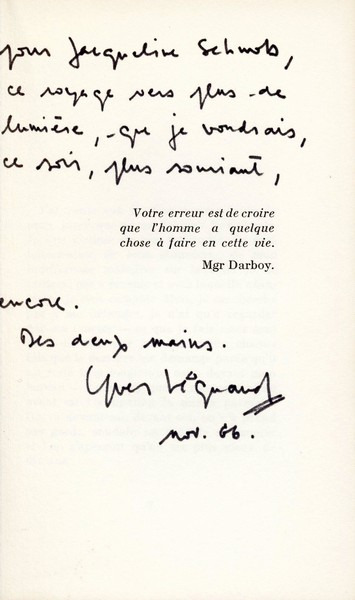 pour Jacqueline Schmob,
ce voyage vers plus de
lumière, - que je voudrais,
ce soir, plus souriant,
Votre erreur est de croire
que l'homme a quelque
chose à faire en cette vie.
Mgr Darboy.
encore.
Des deux mains.
Yves
nov. 66.